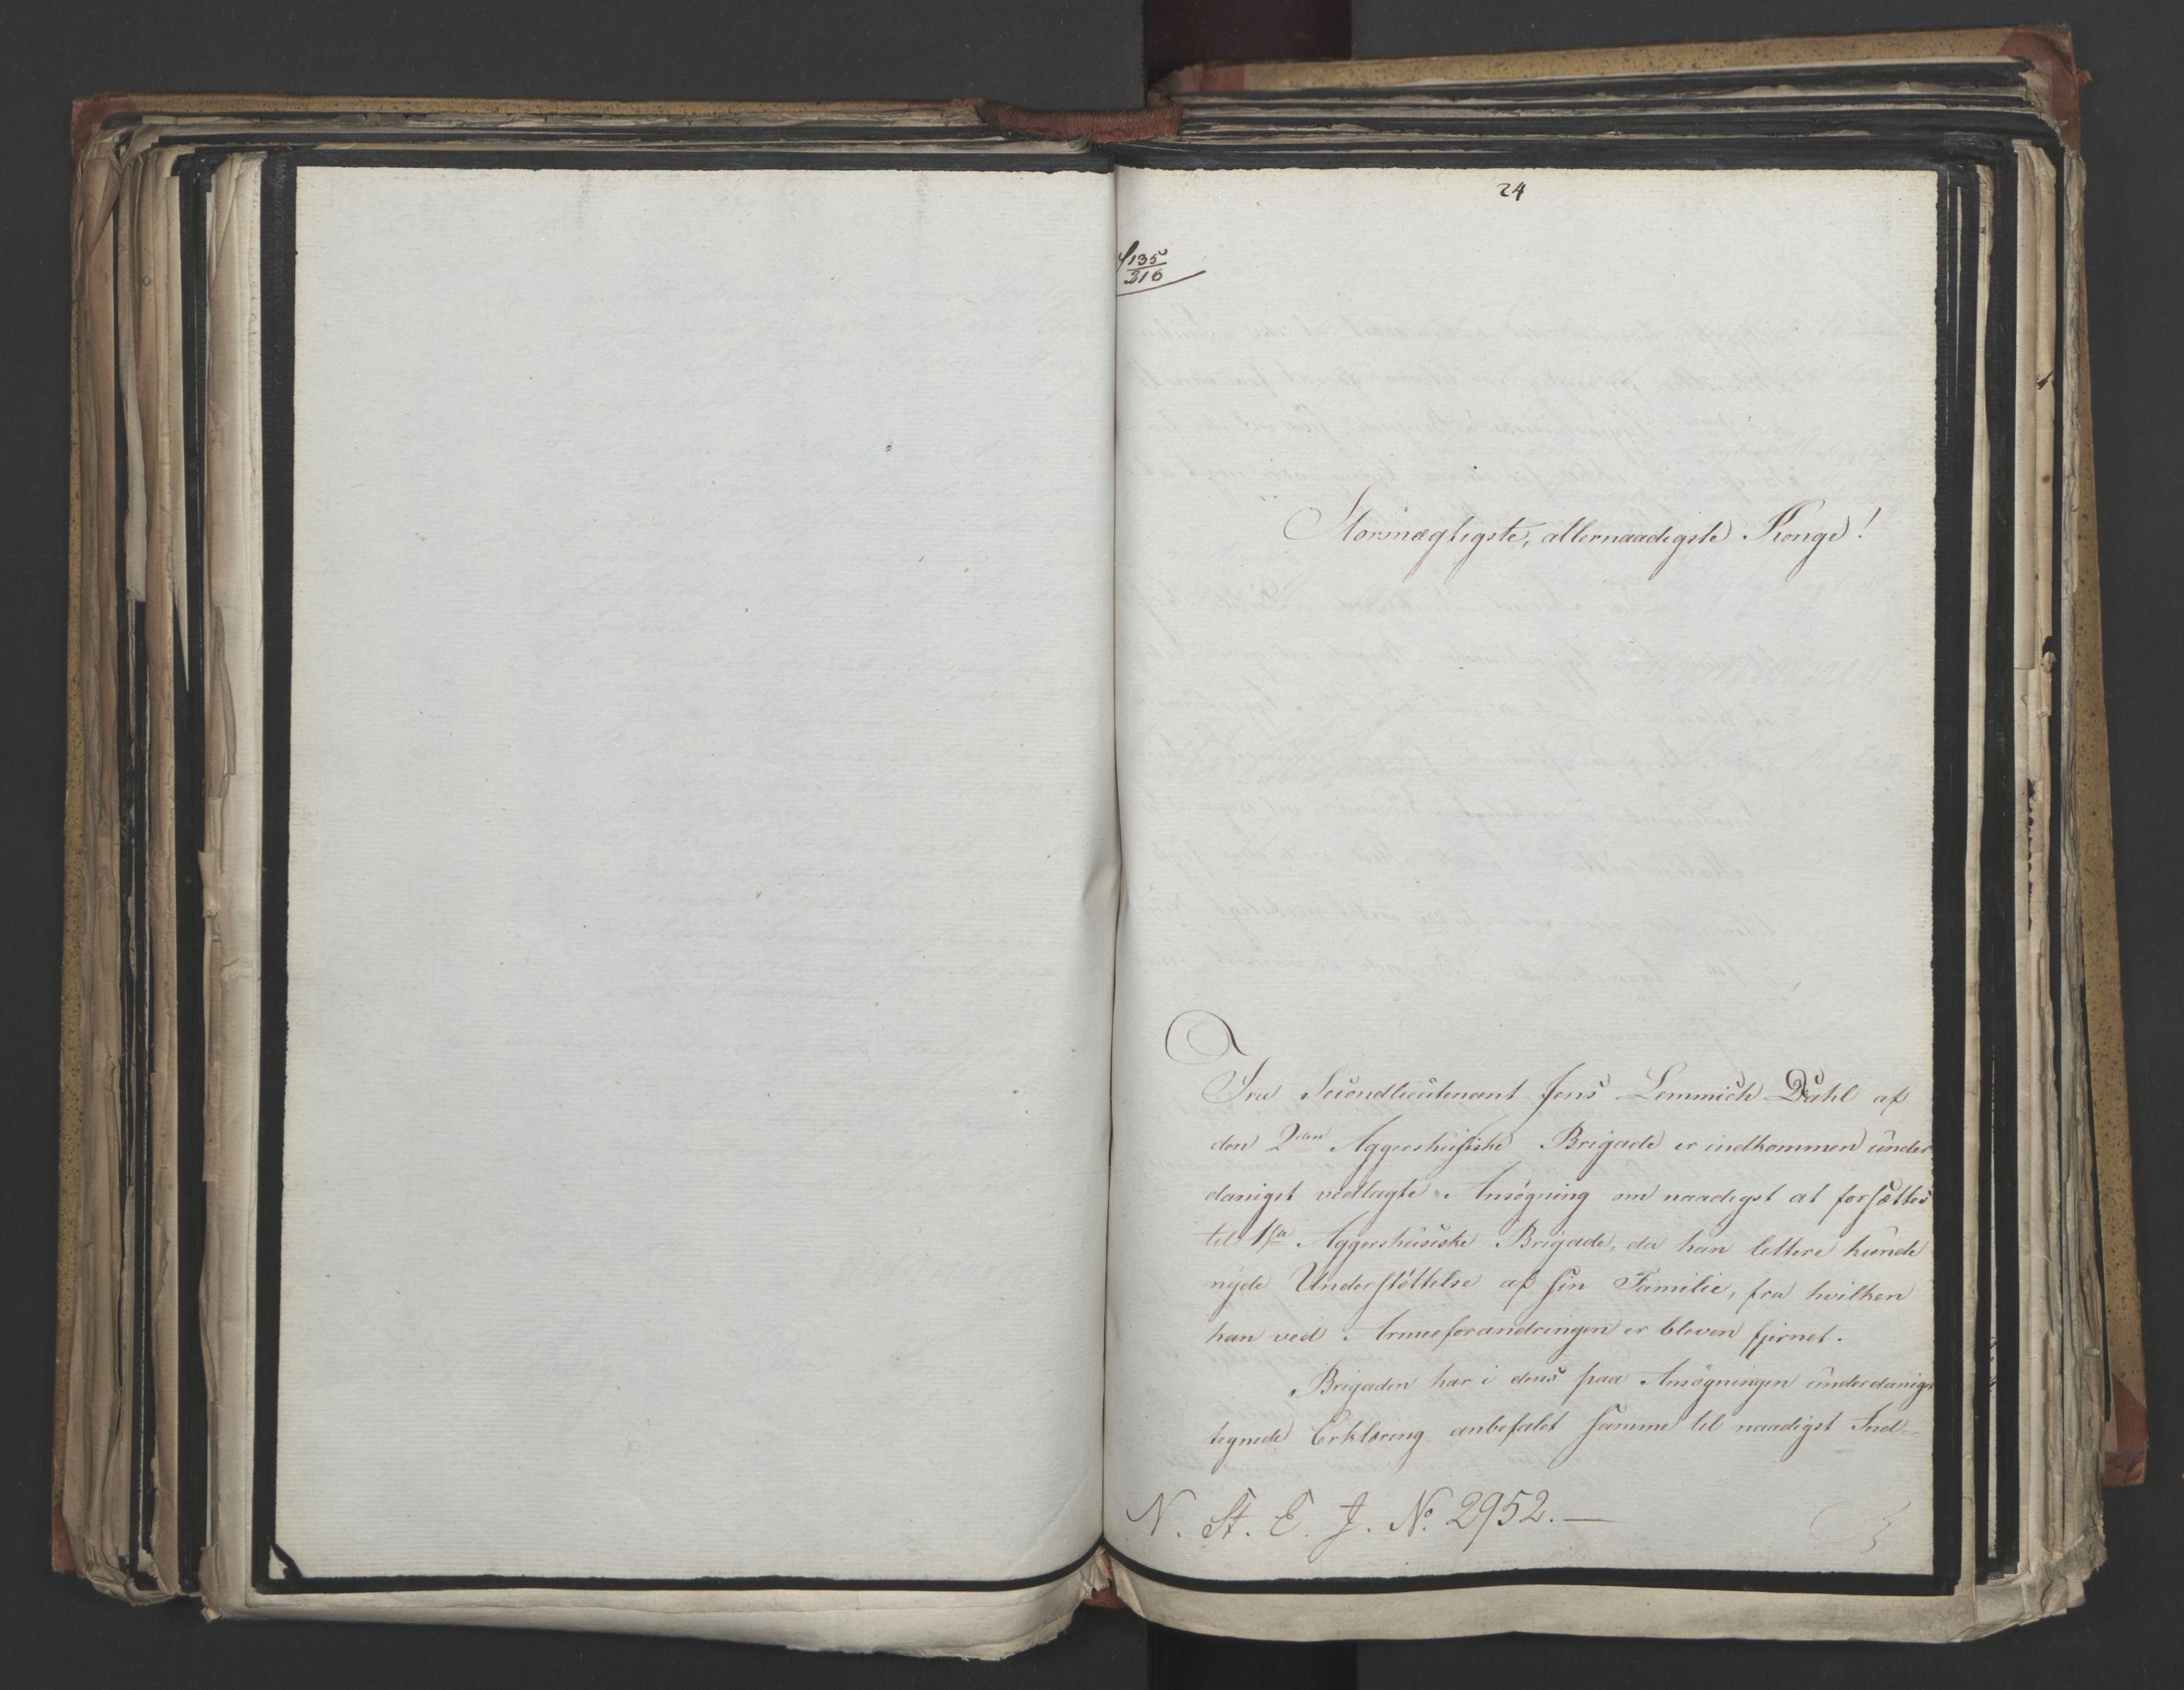 24
135
316
Stormægtigste, allernaadigste Konge!
Fra Secondlieutenant Jens Lemmich Dahl af
den 2den Aggershusiske Brigade er indkommen under
danigst vedlagte Ansøgning om naadigst at forsættes
til 1ste Aggershusiske Brigade, da han lettere kunde
nyde Understøttelse af sin Familie, fra hvilken
han ved Armeeforandringen er bleven fjernet.
Brigaden har i dens paa Ansøgningen underdanigst
tegnede Erklæring anbefalet samme til naadigst Ind-
N. St. E. J. No. 2952.—